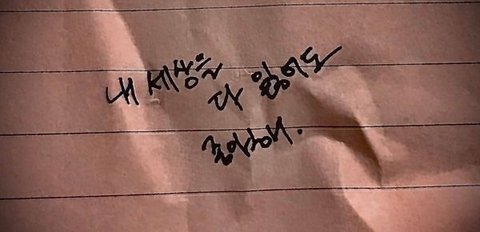 내 세상을
다 잃어도
좋아해.